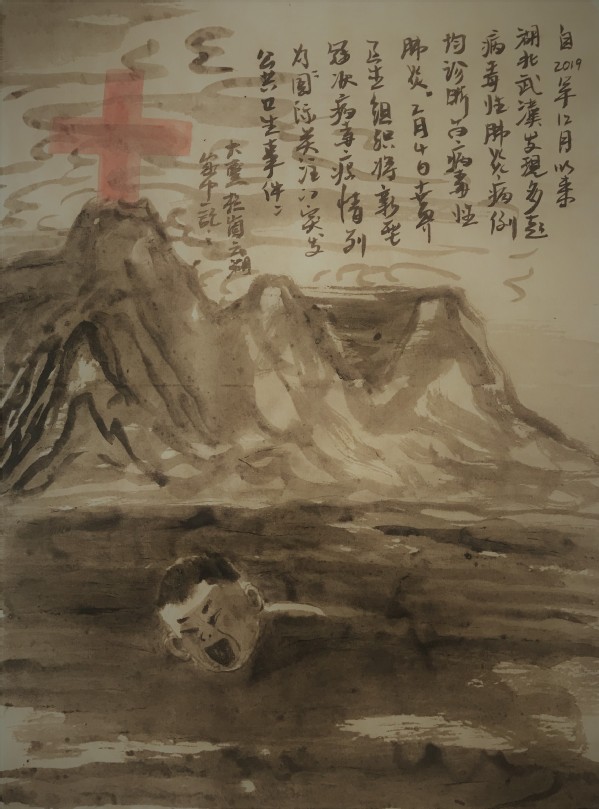 自2019年12月以来
湖北武漢发现多起
病毒性肺炎病例
均诊断为病毒性
肺炎。月日世界
卫生组织将新型
冠状病毒疫情列
为国际关注的突发
公共卫生事件